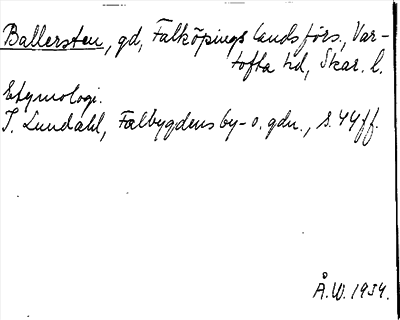 Ballersten, gd, Falköpings landsförs., Var-
tofta hd, Skar. l.
Etymologi.
I. Lundahl, Falbygdens by- o. gdn., s. 44 ff.
Å.W. 1934.